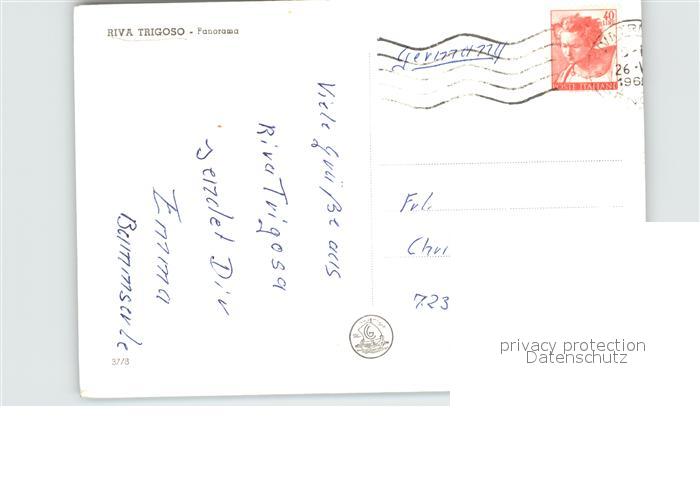 RIVA TRIGOSO - Panorama
40
LIRE
POSTE ITALIANE
26
196
Germany
Viele Grüße aus
Riva Trigosa
sendet Dir
Emma
Frl.
Chri
7.23
3778
privacy protection
Datenschutz